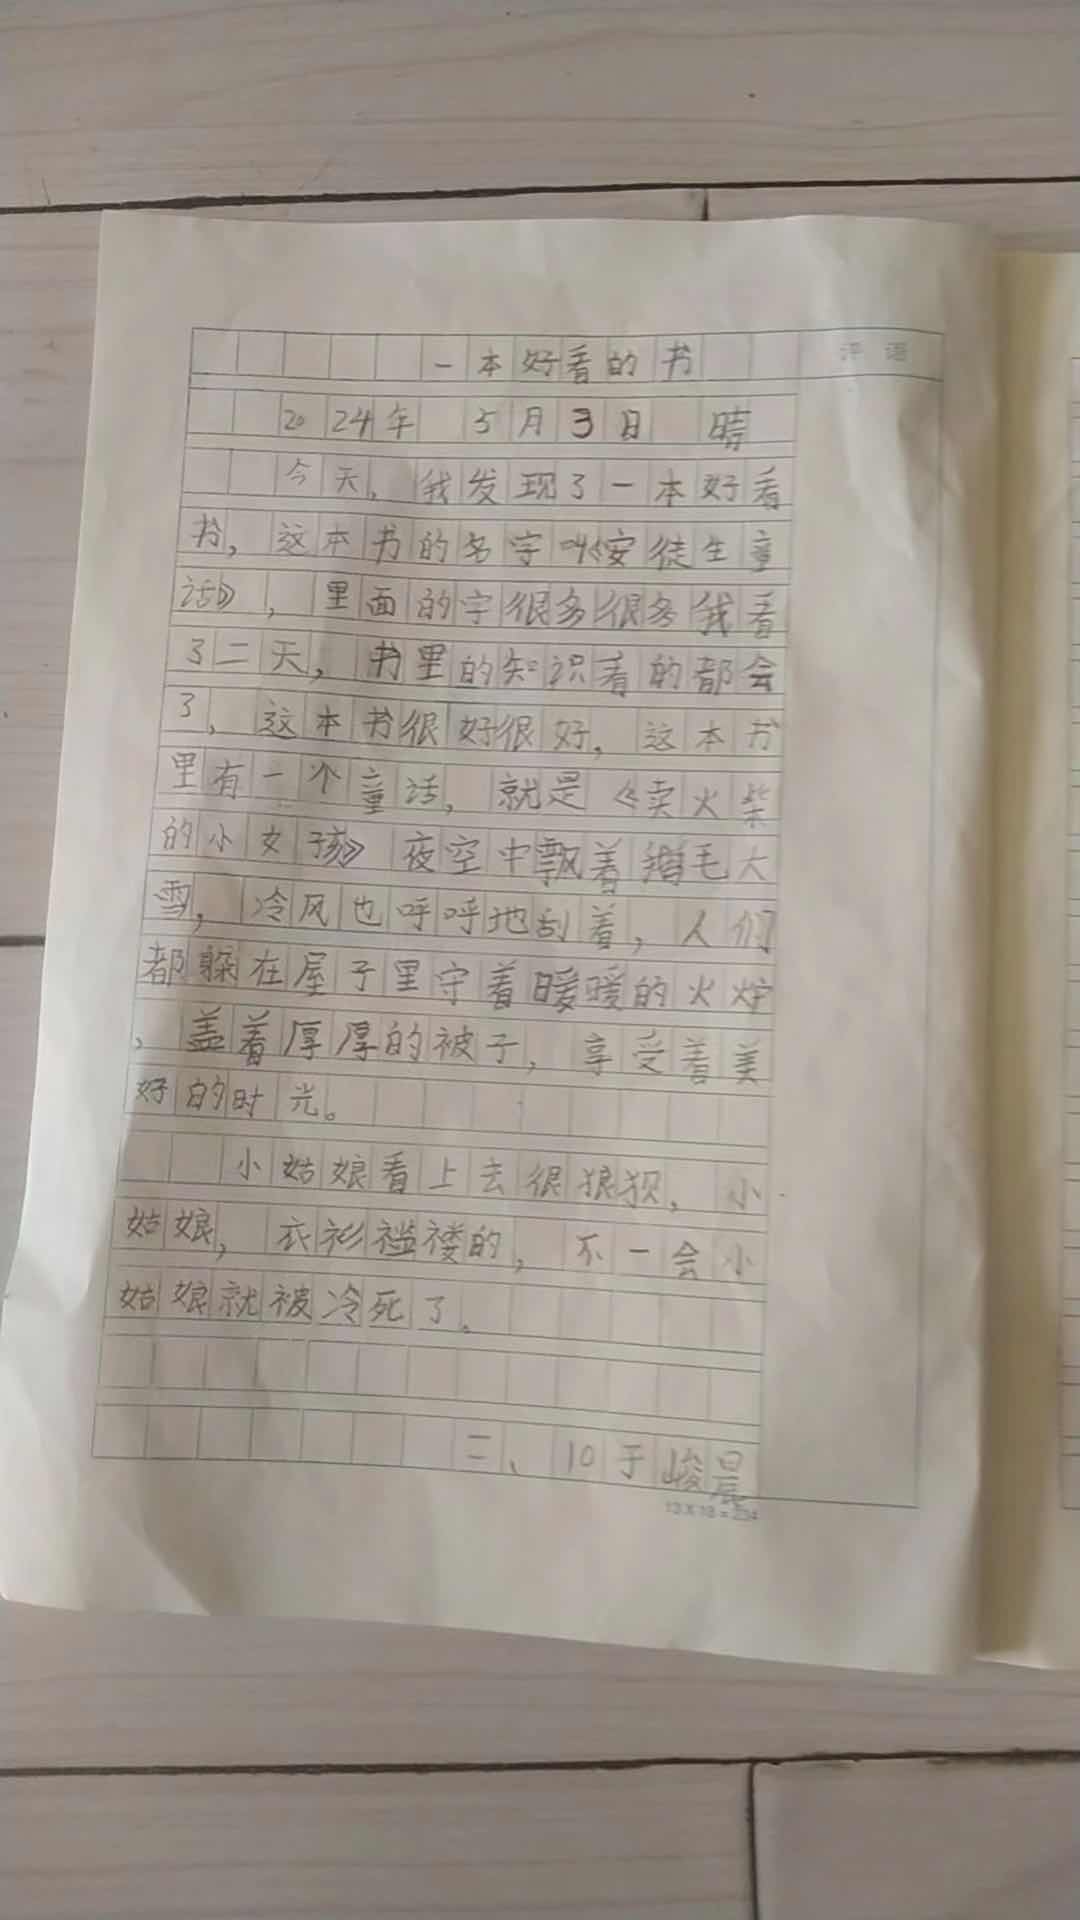 一本好看的书
评语
2024年 5月3日 晴
今天，我发现了一本好看
书，这本书的名字叫《安徒生童
话》，里面的字很多很多我看
了二天，书里的知识看的都会
了，这本书很好很好，这本书
里有一个童话，就是《卖火柴
的小女孩》夜空中飘着鹅毛大
雪，冷风也呼呼地刮着，人们
都躲在屋子里守着暖暖的火炉
，盖着厚厚的被子，享受着美
好的时光。
小姑娘看上去很狼狈，小
姑娘，衣衫褴褛的，不一会小
姑娘就被冷死了。
二、10于峻晨
13×18=234